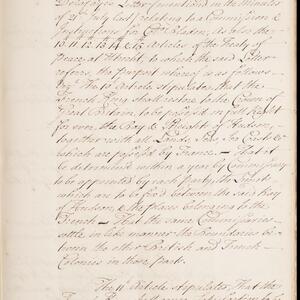 Delafaye's Letter mentioned in the Minutes
of 21st July last, relating to a Commission &
Instructions for Collo. Bladen, As also the
10. 11. 12. 13. 14 & 15 Articles of the Treaty of
peace at Utrecht to which the said Letter
refers, the purport whereof is as follows
Vizt. The 10th Article stipulates, that the
French King shall restore to the Crown of
Great Britain, to be possess'd in full Right
for ever, the Bay & Streights of Hudson
together with all Lands, Seas, Sea Coasts &c
which are possess'd by France. That it
be determined within a year by Commissarys
to be appointed by each party, the Limits
which are to be fixed between the said Bay
of Hudson & the places belonging to the
French. That the same Commissaries
settle in like manner the Boundaries be-
tween the other British and French
Colonies in those parts.
The 11th Article stipulates, That the